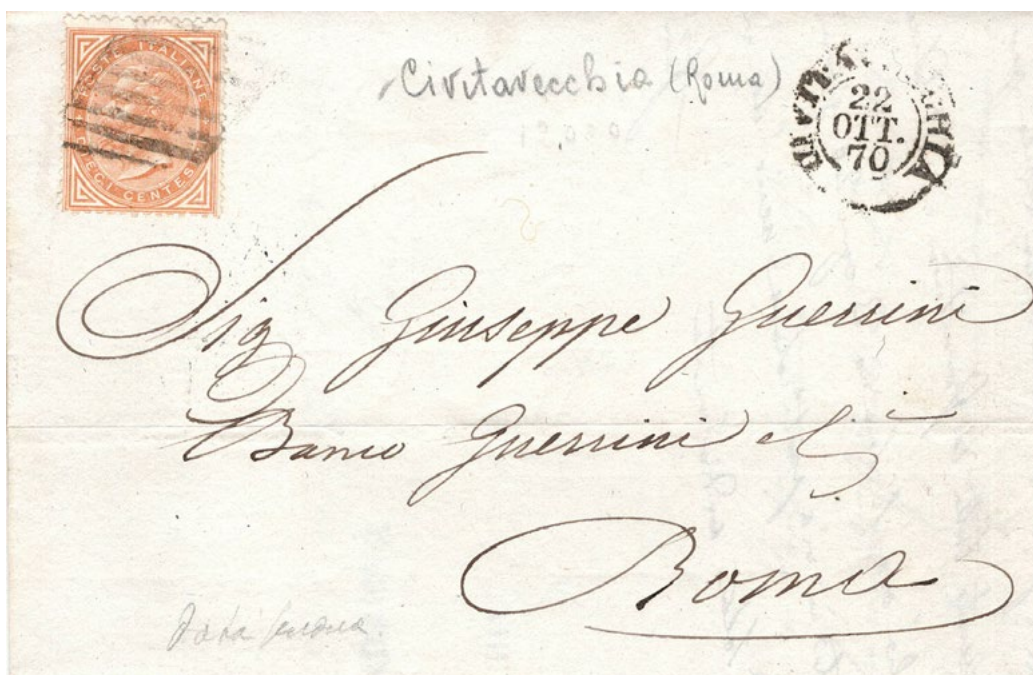 POSTE ITALIANE
DIECI CENTES
Civitavecchia (Roma)
12.000
CIVITAVECCHIA
22
OTT.
70
Sig Giuseppe Guerrini
Banco Guerrini e C.
Roma